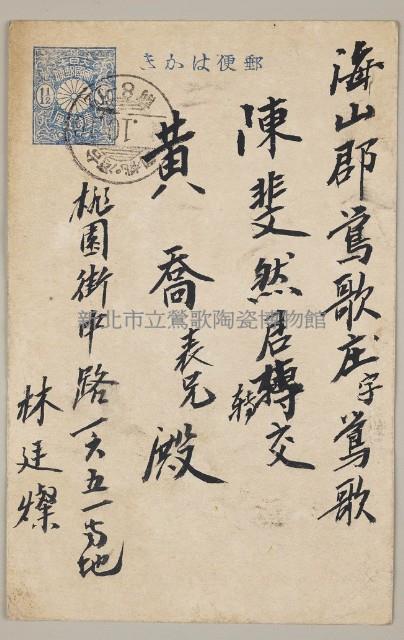 郵便はかき
1½
海山郡鶯歌庄字鶯歌
陳斐然君轉交
轉
黄喬表兄殿
桃園街中路一六五一番地
林廷燦
新北市立鶯歌陶瓷博物館